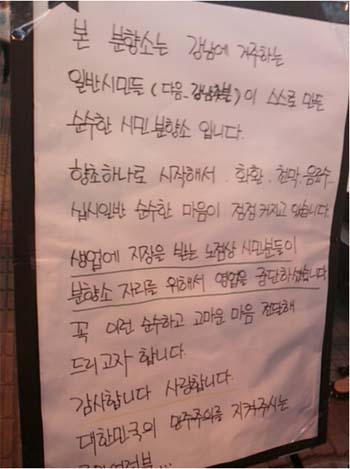 본 분향소는 강남에 거주하는
일반시민들 (다음_강남촛불) 이 스스로 만든
순수한 시민분향소 입니다.
향초하나로 시작해서. 화환. 천막. 음료수
십시일반 순수한 마음이 점점 커지고 있습니다.
생업에 지장을 받는 노점상 시민분들이
분향소 자리를 위해서 영업을 중단하셨습니다
꼭 이런 순수하고 고마운 마음 전달해
드리고자 합니다.
감사합니다 사랑합니다.
대한민국의 민주주의를 지켜주시는